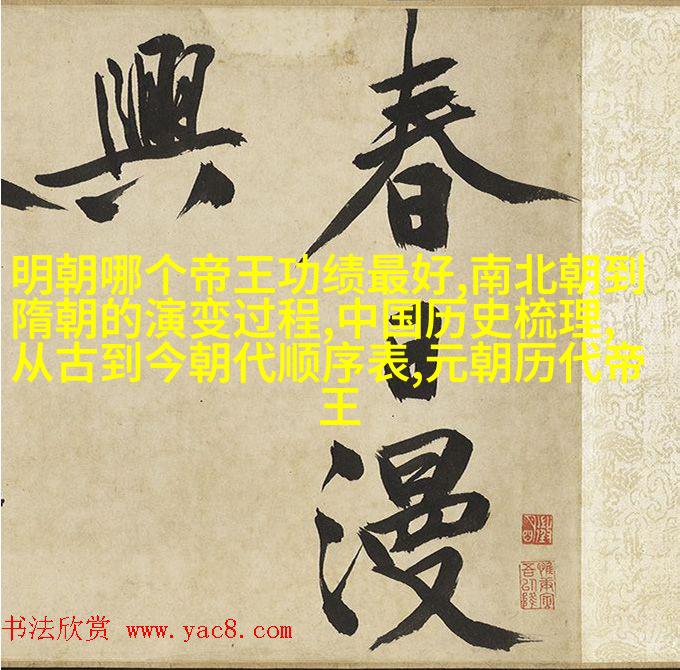 春日漫
興
明朝哪个帝王功绩最好,南北朝到
隋朝的演变过程,中国历史梳理,
从古到今朝代顺序表,元朝历代帝
王
书法欣赏 www.yac8.com